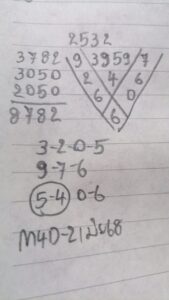 2532
3782 9 3959 7
3050 2 4 6
2050 6 0
8782 6
3-2-0-5
9-7-6
5-4 0-6